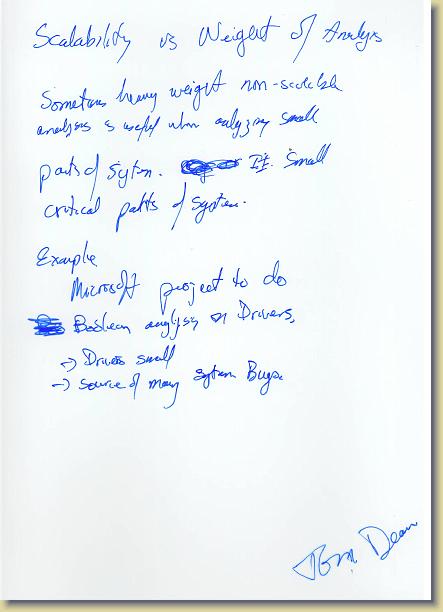 Scalability vs Weight of Analysis
Sometimes heavy weight non-scalable
analysis is useful when analyzing small
parts of system. IE. Small
critical paths of system.
Example
Microsoft project to do
Boolean analysis on Drivers.
-> Drivers small
-> Source of many system Bugs.
Tom Dean